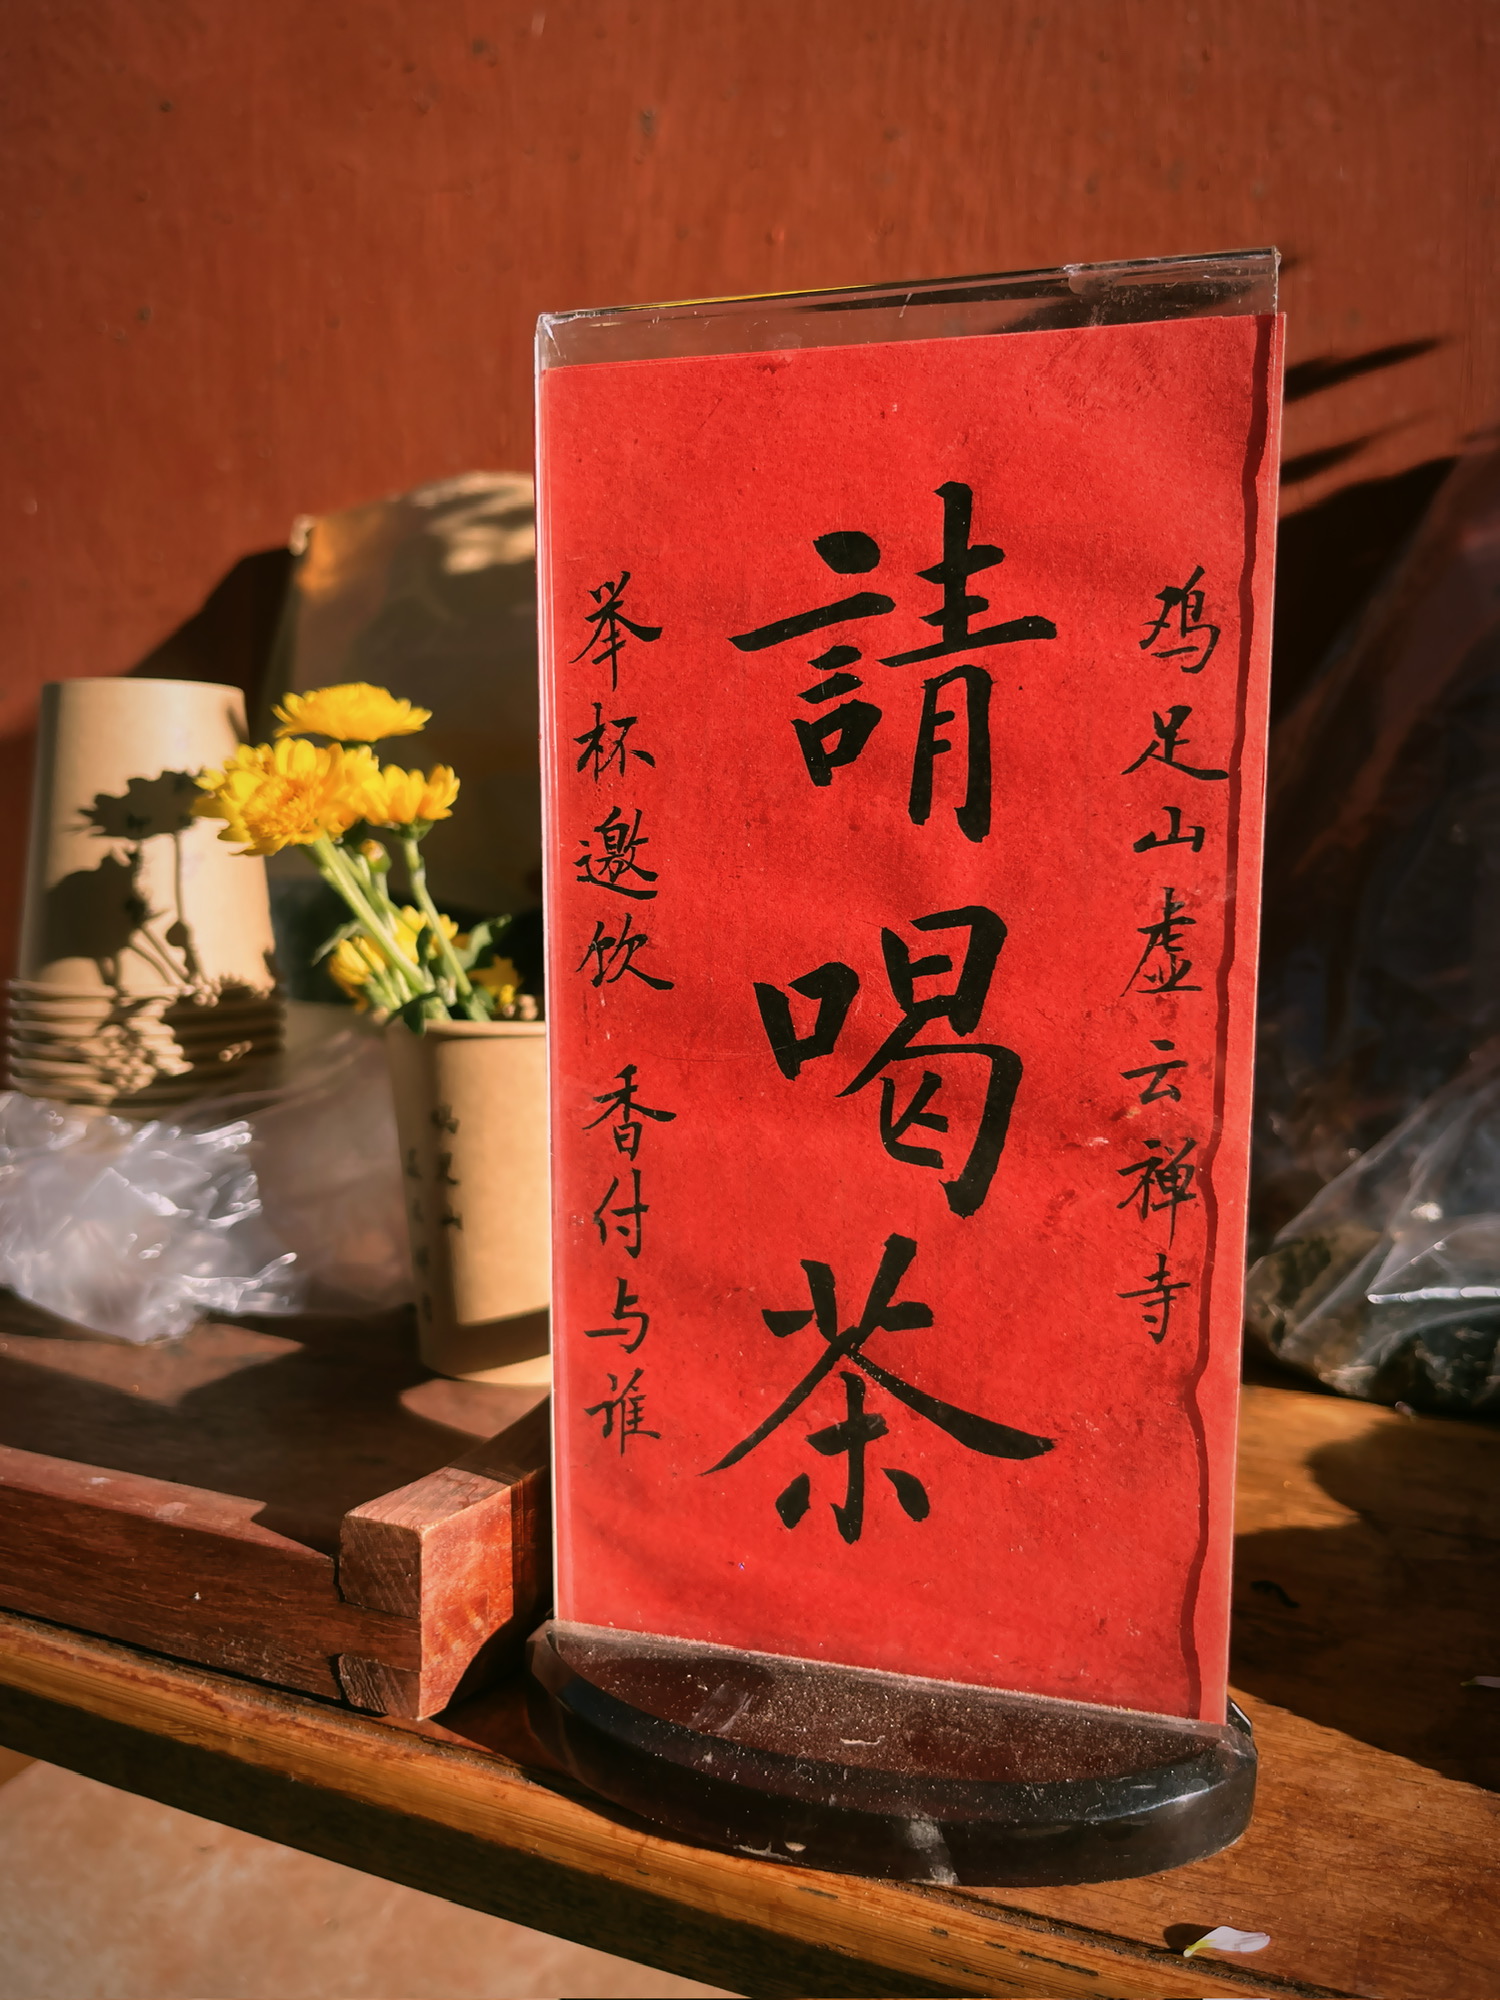 鸡足山虚云禅寺
請喝茶
举杯邀饮 香付与谁